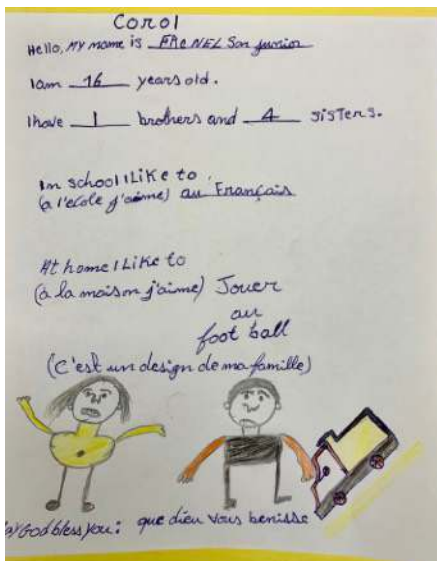 Corol
Hello, My name is FRENEL Son junior
I am 16 years old.
I have 1 brothers and 4 sisters.
In school I Like to
(à l'école j'aime) au Français
At home I Like to
(à la maison j'aime) Jouer
au
foot ball
(C'est un design de ma famille)
God bless you: que dieu vous benisse